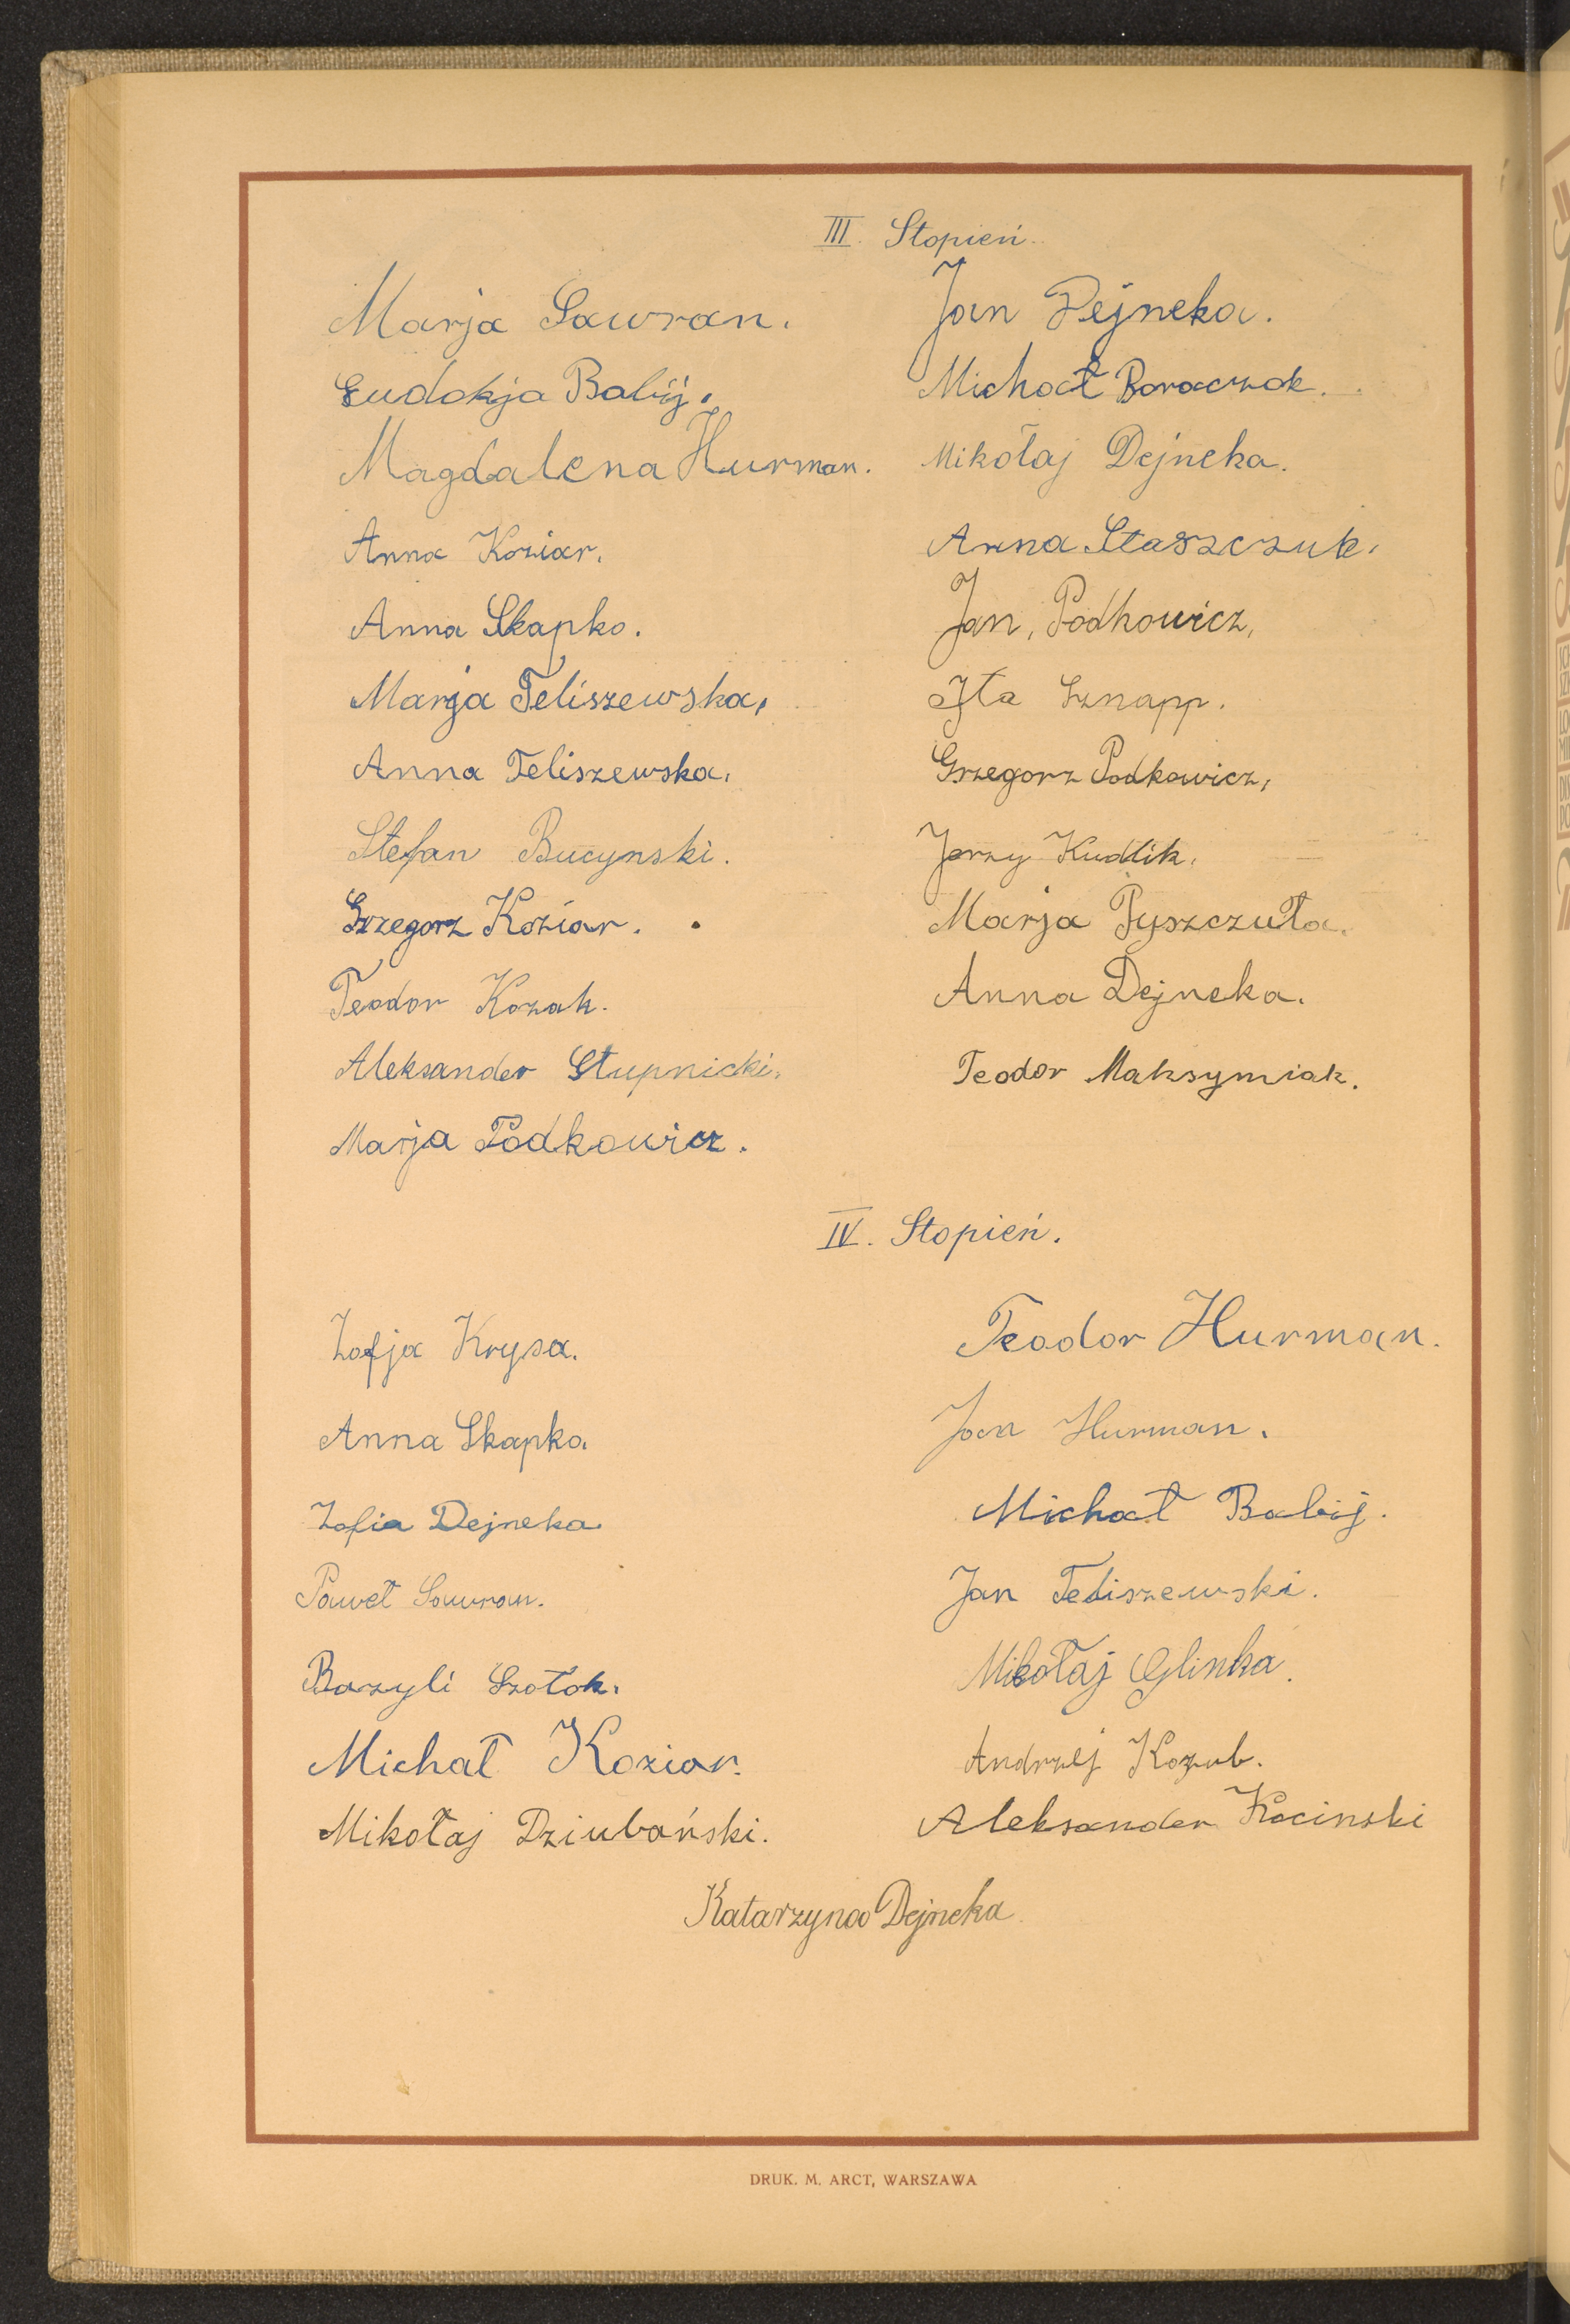 III. Stopień.
Marja Sawran.
Eudokja Babij.
Magdalena Hurman.
Anna Koziar.
Anna Skapko.
Marja Teliszewska.
Anna Teliszewska.
Stefan Bucynski.
Grzegorz Koziar.
Teodor Kozak.
Aleksander Stupnicki.
Marja Podkowicz.
Jan Dejneka.
Michał Baraczok.
Mikołaj Dejneka.
Anna Staszczuk.
Jan, Podkowicz,
Jta Sznapp.
Grzegorz Podkowicz,
Jerzy Kudlik.
Marja Pyszczuła.
Anna Dejneka.
Teodor Maksymiak.
IV. Stopień.
Zofja Krysa.
Anna Skapko.
Zofia Dejneka.
Paweł Sawran.
Bazyli Szołok.
Michał Koziar.
Mikołaj Dziubański.
Teodor Hurman.
Jan Hurman.
Michał Babij.
Jan Teliszewski.
Mikołaj Glinka.
Andrzej Kozub.
Aleksander Kocinski
Katarzyna Dejneka
DRUK. M. ARCT, WARSZAWA